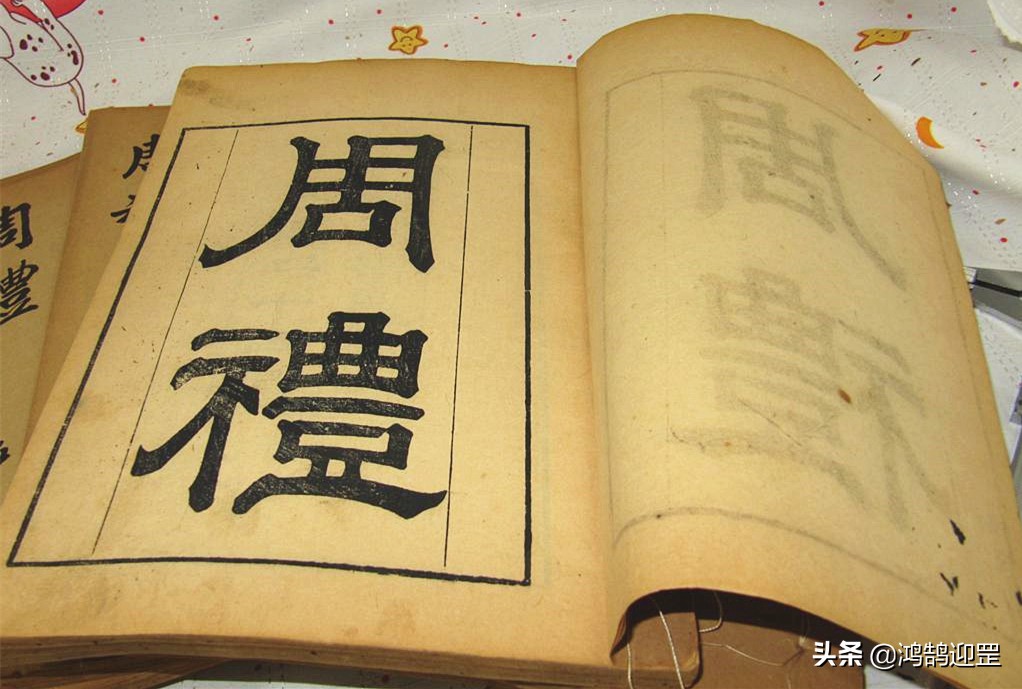 周
禮
周
禮
头条 @鸿鹄迎罡